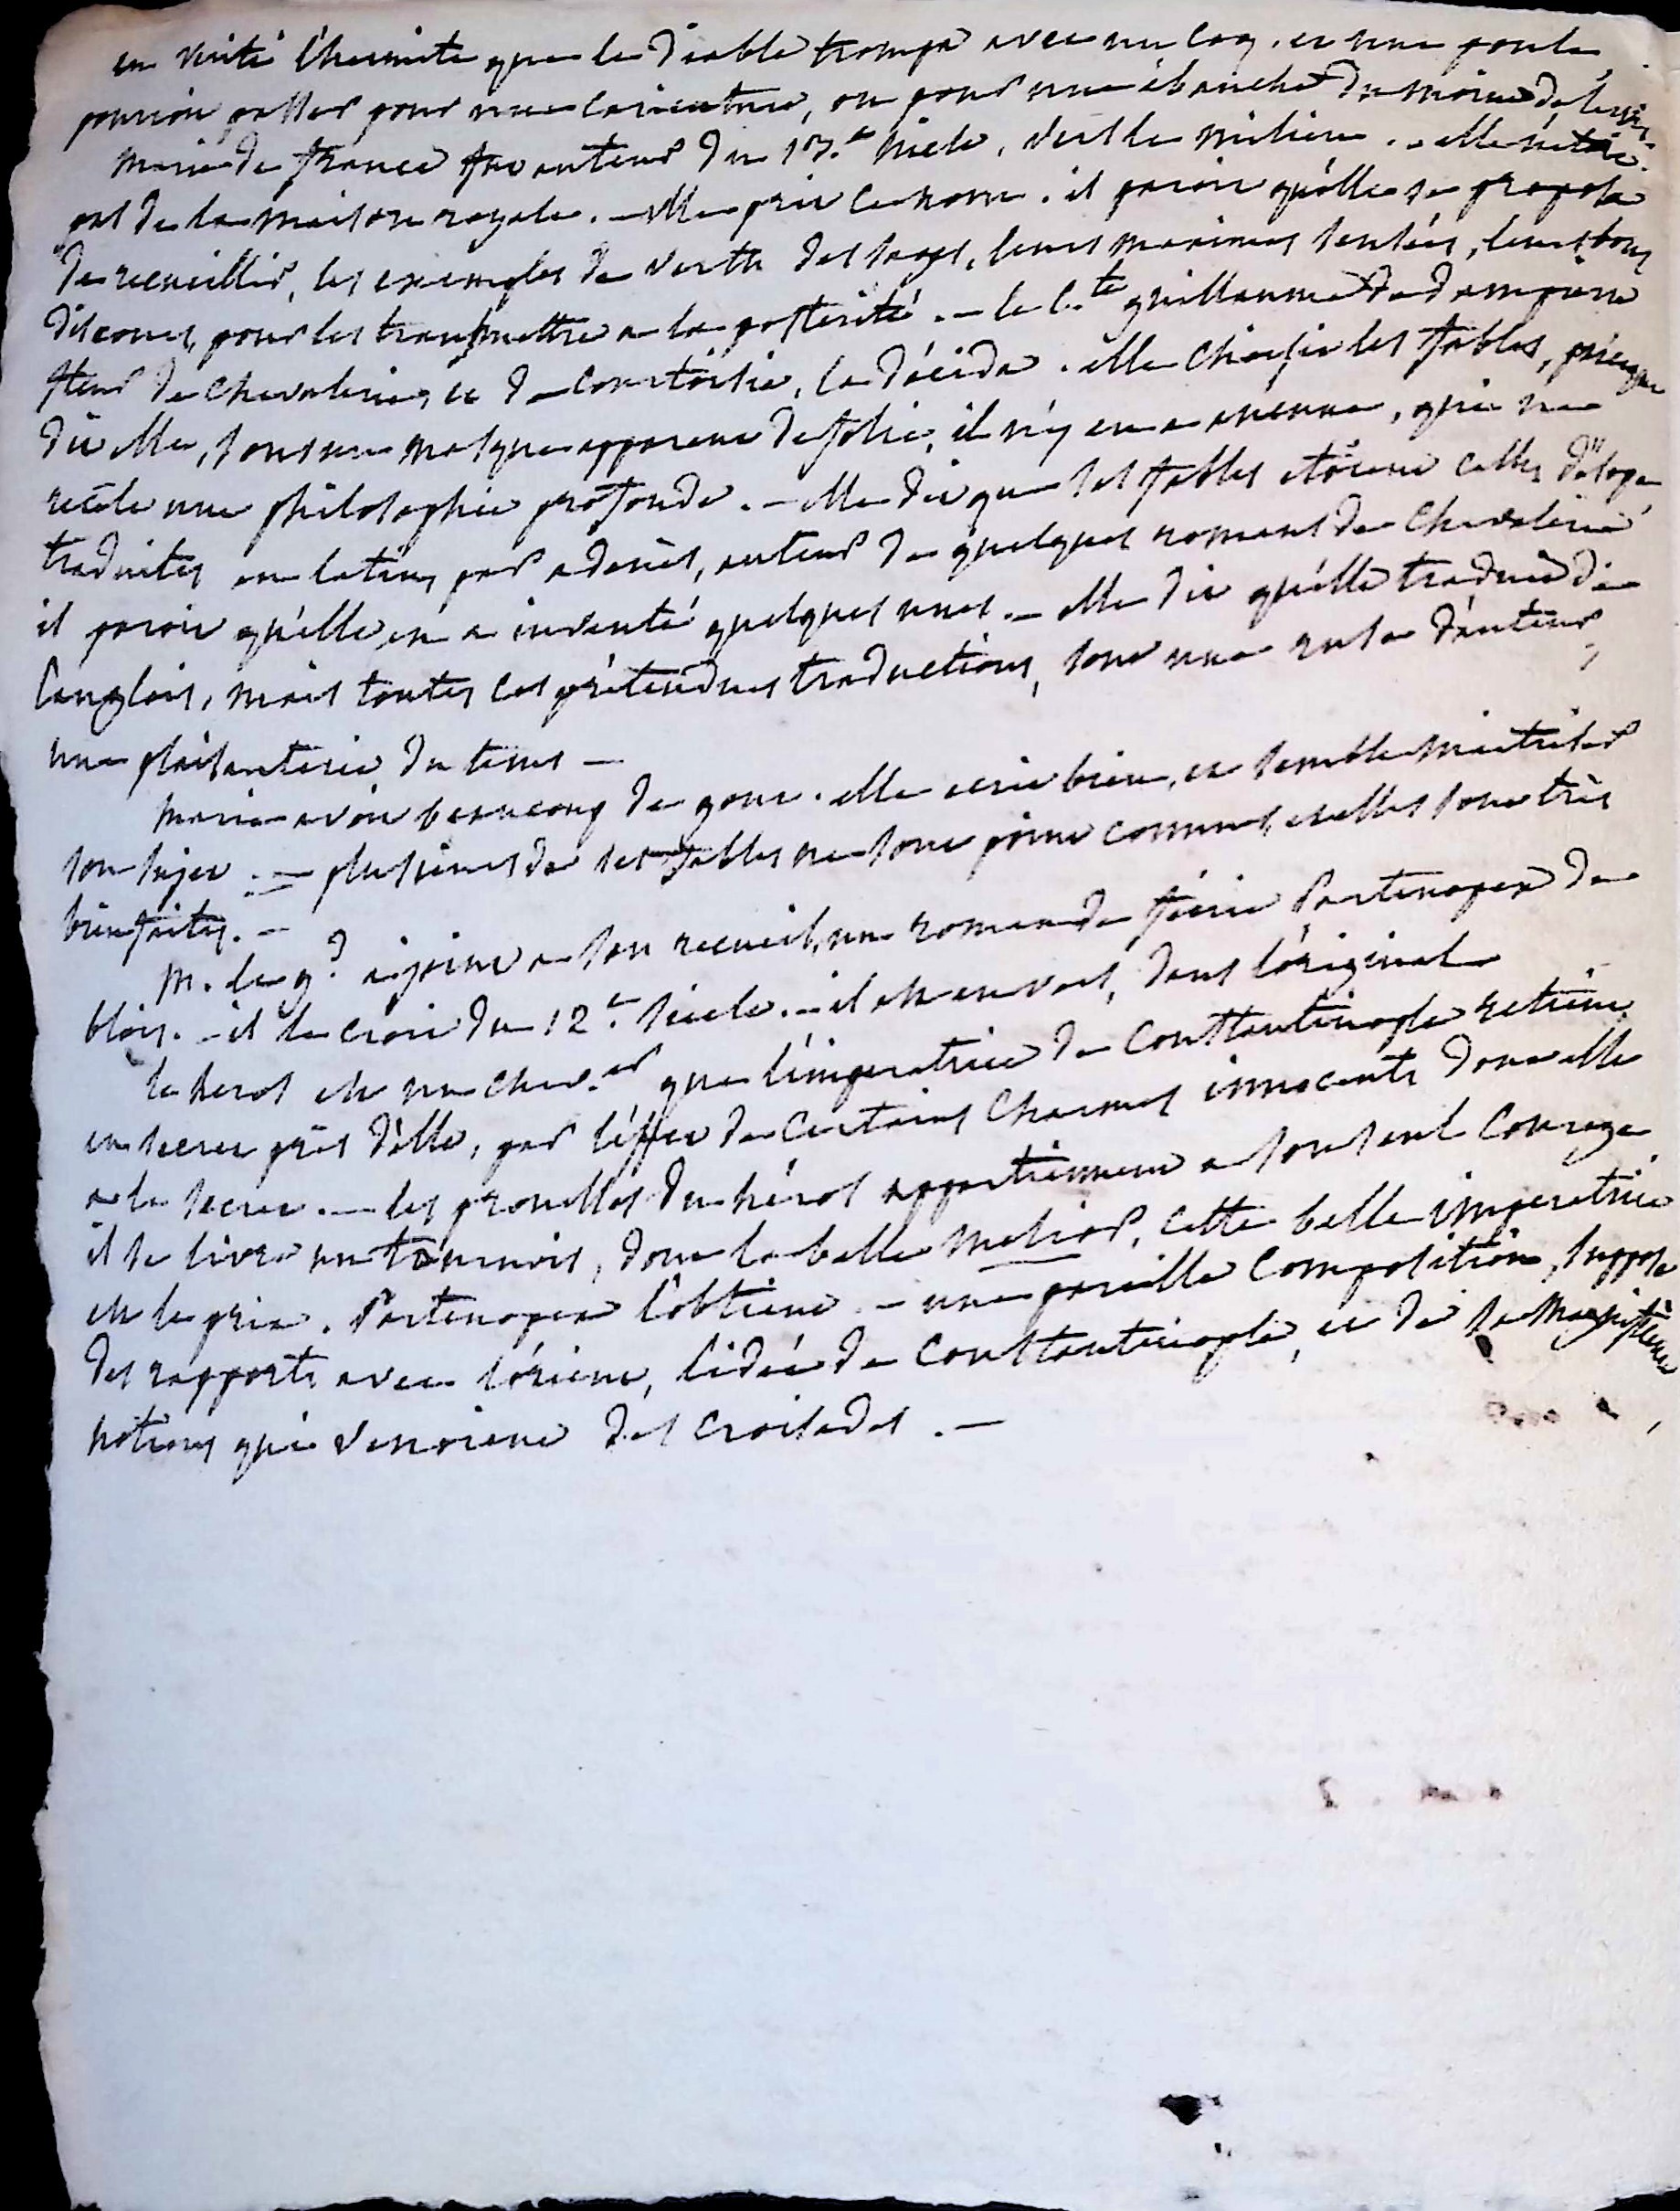 en vérité l'hermite que le diable trompa avec un coq, et une poule
pouroit passer pour une caricature, ou pour une ébauche du moine de
marie de france fut auteur du 13.e siècle, vers le milieu .. elle n'étoit
pas de la maison royale. — elle prit ce nom. il paroit qu'elle se proposa
de recueillir, les exemples de vertu des sages, leurs maximes sensées, leurs bons
discours, pour les transmettre a la postérité. — le c.te guillaume de dampierre
fleur de chevalerie, et de courtoisie, la décida. elle choisit les fables, parceque
dit elle, sous un masque apparent de folie, il n'y en a aucune, qui ne
recèle une philosophie profonde. — elle dit que ses fables etoient celles d'Esope
traduites en latin, par adenès, auteur de quelques romans de chevalerie
il paroit qu'elle en a inventé quelques unes. — elle dit qu'elle traduit de
l'anglois, mais toutes ces prétendues traductions, sont une ruse d'auteur,
une plaisanterie du tems —
marie avoit beaucoup de gout. elle ecrit bien, et semble maitriser
son sujet. — plusieurs de ses fables ne sont point connues, et elles sont très
bien faites. —
M. le g.d a joint a son recueil, un roman de féerie Partenopex de
blois. — il le croit du 12.e siècle. — il est en vers, dans l'original
le heros est un chev.er que l'imperatrice de Constantinople retient
en secret près d'elle, par l'effet de certains charmes innocents dont elle
a le secret. — les prouesses du héros appartiennent a son seul courage
il se livre un tournois, dont la belle Melior, cette belle imperatrice
est le prix. Partenopex l'obtient — une pareille composition, suppose
des rapports avec l'orient, l'idée de Constantinople, et de sa magnificence
notions qui venoient des croisades. —